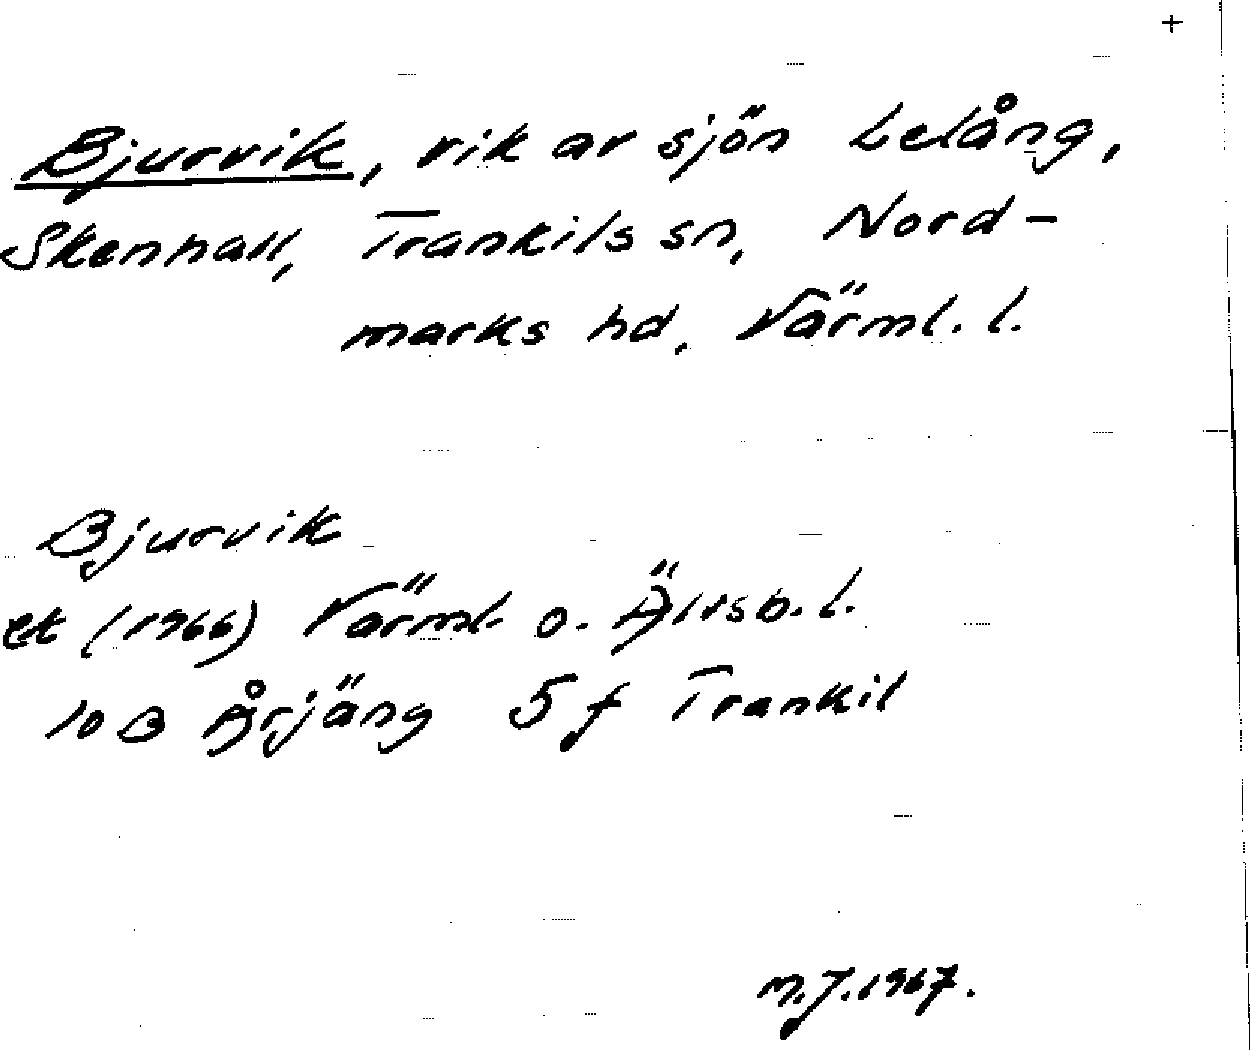 +
Bjurvik, vik av sjön Lelång,
Skenhall, Trankils sn, Nord-
marks hd, Värml. l.
Bjurvik
ek (1966) Värml. o. Älvsb. l.
10 B Årjäng 5 f Trankil
M.J. 1967.